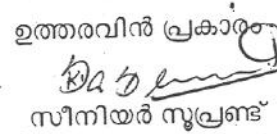 ഉത്തരവിൻ പ്രകാരം
സീനിയർ സൂപ്രണ്ട്